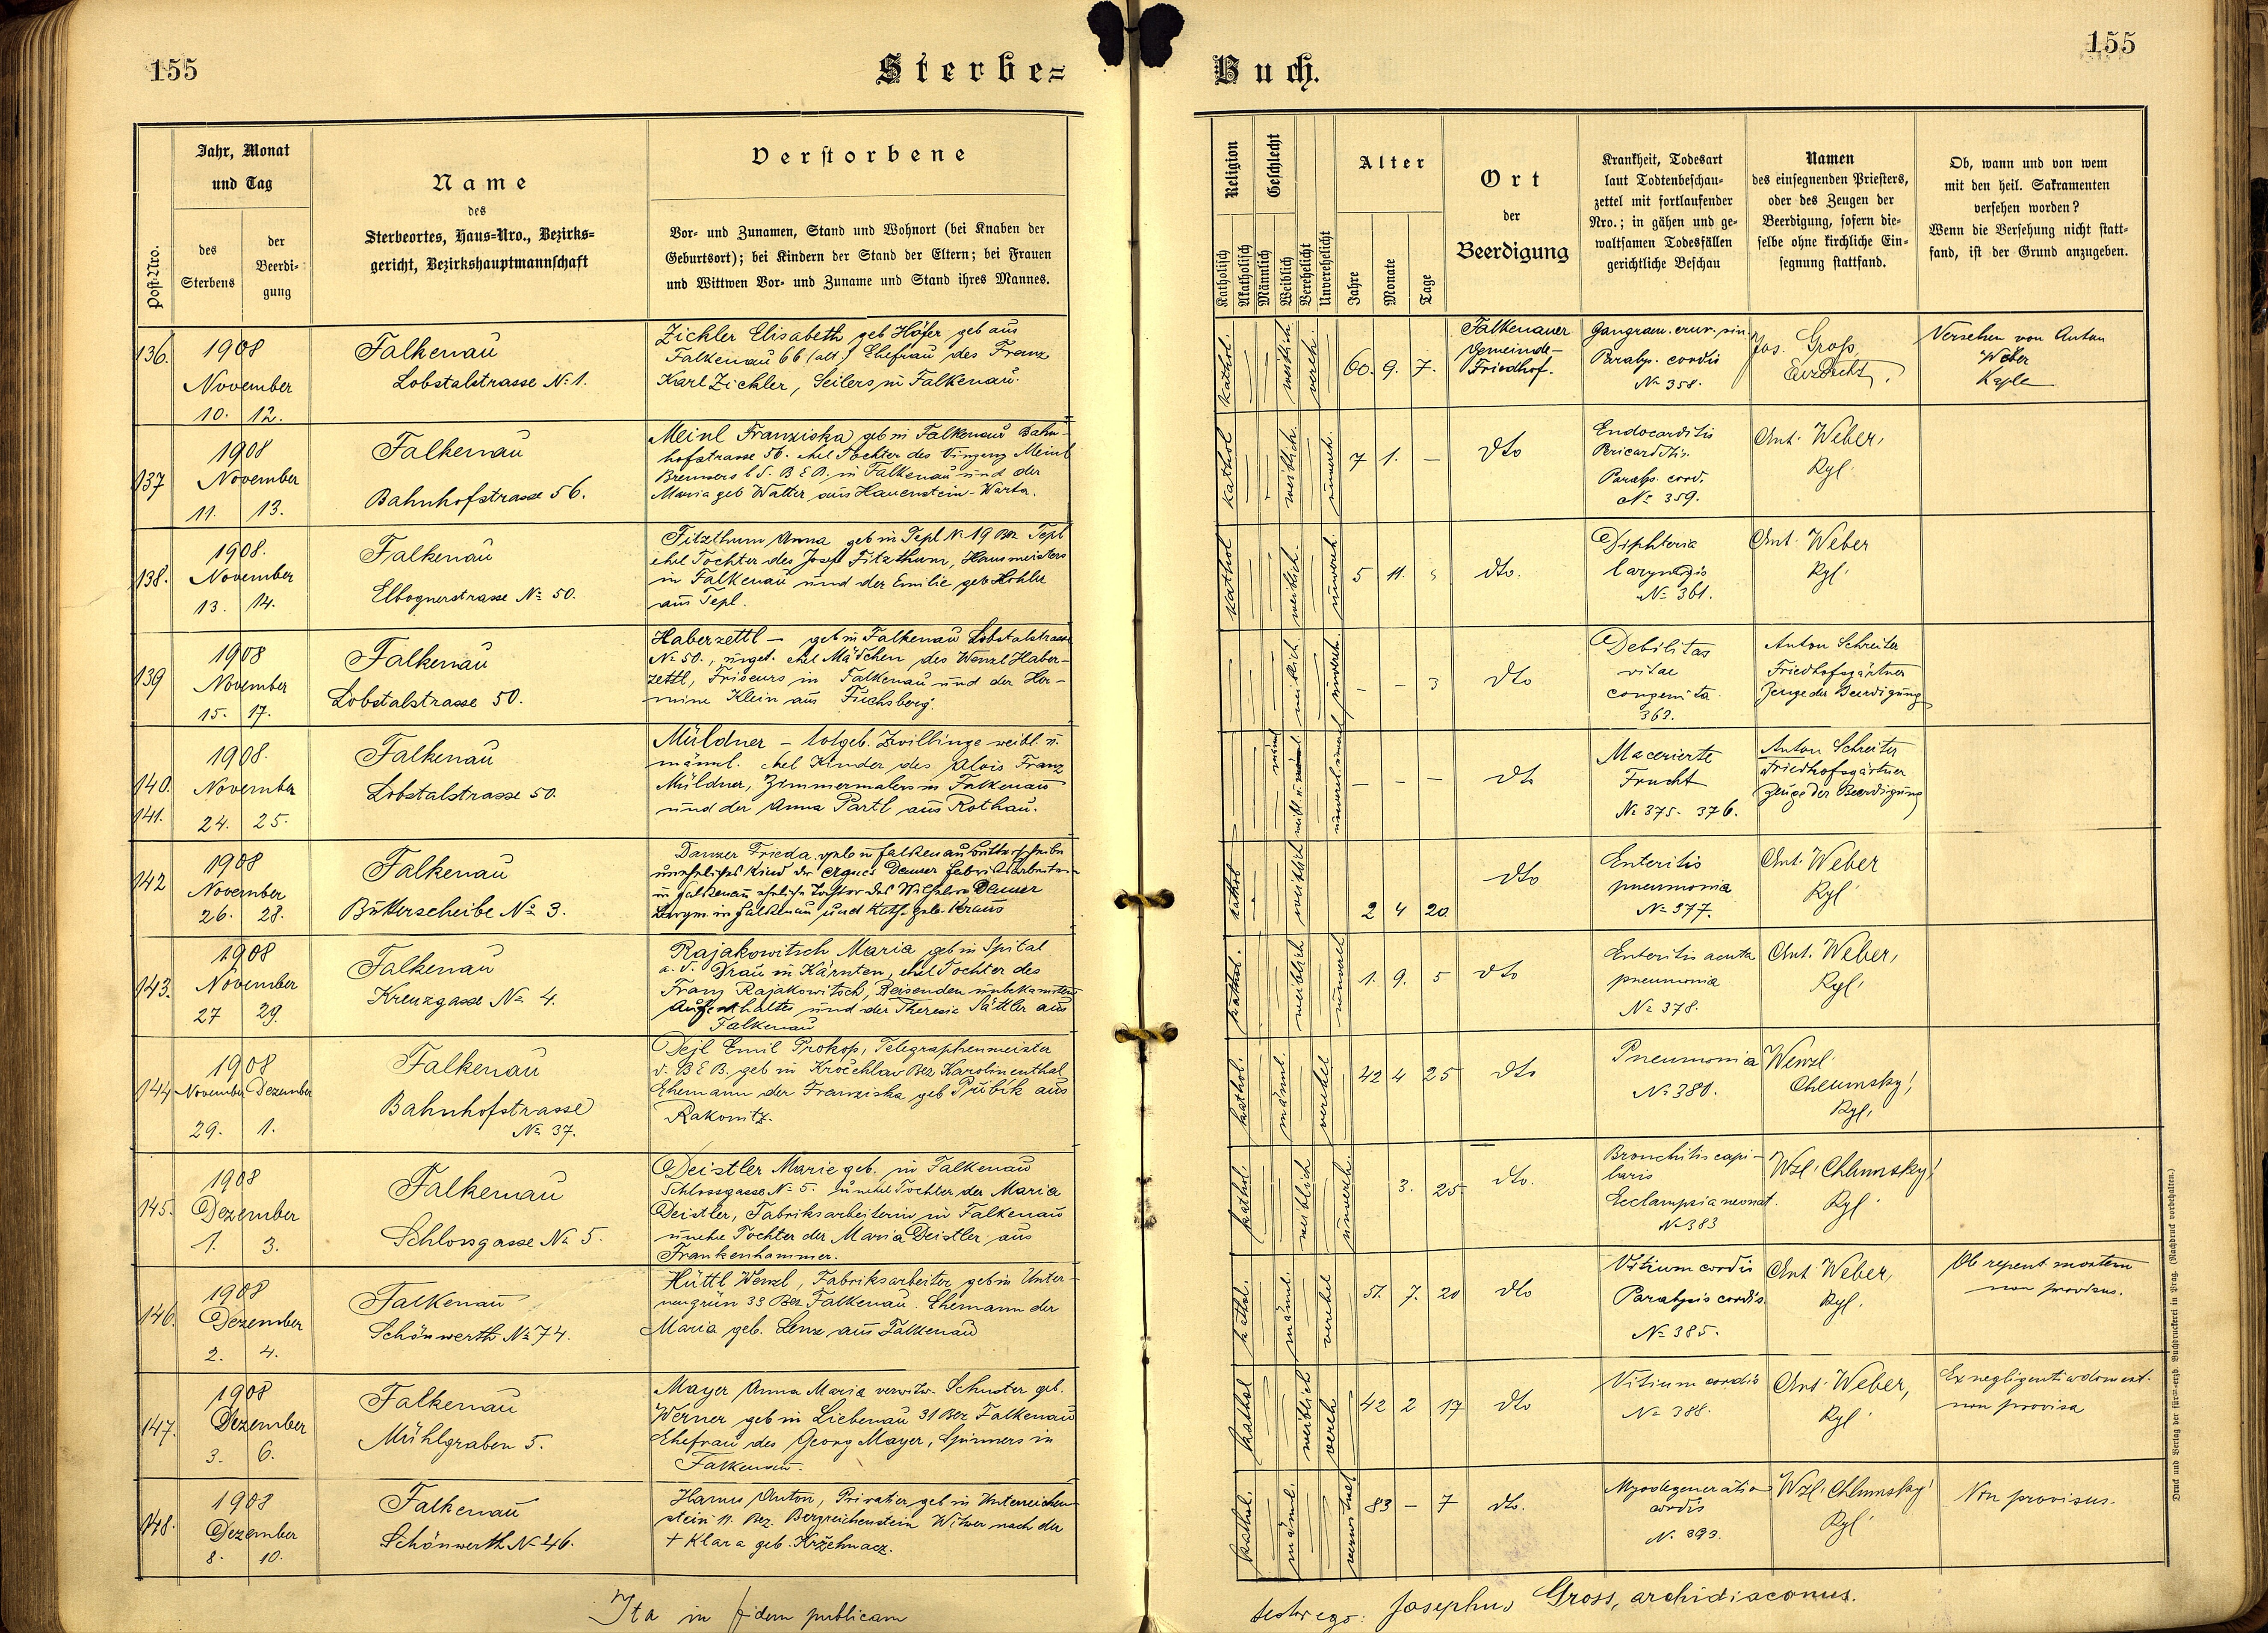 155
Sterbe=
Buch.
155
Post-Nro.
Jahr, Monat
und Tag
des
Sterbens
der
Beerdi=
gung
Name
des
Sterbeortes, Haus=Nro., Bezirks=
gericht, Bezirkshauptmannschaft
Verstorbene
Vor= und Zunamen, Stand und Wohnort (bei Knaben der
Geburtsort); bei Kindern der Stand der Eltern; bei Frauen
und Wittwen Vor= und Zuname und Stand ihres Mannes.
Religion
Katholisch
Akatholisch
Geschlecht
Männlich
Weiblich
Verehelicht
Unverehelicht
Alter
Jahre
Monate
Tage
Ort
der
Beerdigung
Krankheit, Todesart
laut Todtenbeschau=
zettel mit fortlaufender
Nro.; in gähen und ge=
waltsamen Todesfällen
gerichtliche Beschau
Namen
des einsegnenden Priesters,
oder des Zeugen der
Beerdigung, sofern die=
selbe ohne kirchliche Ein=
segnung stattfand.
Ob, wann und von wem
mit den heil. Sakramenten
versehen worden?
Wenn die Versehung nicht statt=
fand, ist der Grund anzugeben.
136.
1908
November
10. 12.
Falkenau
Lobstalstrasse No 1.
Zickler Elisabeth geb Höfer geb aus
Falkenau 66 (alt) Ehefrau des Franz
Karl Zickler, Seilers in Falkenau.
kathol.
weiblich
vereh.
60. 9. 7.
Falkenauer
Gemeinde-
Friedhof.
Gangraen. crur. sin.
Paralys. cordis
No 358.
Jos. Gross,
Erzdecht,
Versehen von Anton
Weber
Kaplan
137
1908
November
11. 13.
Falkenau
Bahnhofstrasse 56.
Meinl Franziska geb in Falkenau Bahn-
hofstrasse 56. ehel Tochter des Vinzenz Meinl
Bremsers b d. B E B. in Falkenau und der
Maria geb Walter aus Hauenstein-Warta.
kathol
weiblich.
unvereh.
7 1. –
dto
Endocarditis
Pericarditis.
Paralys. cord.
No 359.
Ant. Weber,
Kpl.
138.
1908.
November
13. 14.
Falkenau
Elbognerstrasse No 50.
Fitzthum Anna geb in Tepl No 19 Bez Tepl
ehel Tochter des Josef Fitzthum, Hausmeisters
in Falkenau und der Emilie geb Köhler
aus Tepl.
kathol
weiblich.
unvereh.
5 11.
dto.
Diphteria
laryngis
No 361.
Ant. Weber
Kpl.
139
1908
November
15. 17.
Falkenau
Lobstalstrasse 50.
Haberzettl – geb in Falkenau Lobstalstrasse
No 50., unget. ehel Mädchen des Wenzl Haber-
zettl, Friseurs in Falkenau und der Her-
mine Klein aus Fuchsberg.
weiblich.
unvereh.
– – 3
dto
Debilitas
vitae
congenita
363.
Anton Schreiter
Friedhofsgärtner
Zeuge der Beerdigung
140.
141.
1908.
November
24. 25.
Falkenau
Lobstalstrasse 50.
Müldner – totgeb. Zwillinge weibl. u.
männl. ehel Kinder des Alois Franz
Müldner, Zimmermalers in Falkenau
und der Anna Partl aus Rothau.
– – –
dto
Macerierte
Frucht
No 375. 376.
Anton Schreiter
Friedhofsgärtner
Zeuge der Beerdigung
142
1908
November
26. 28.
Falkenau
Bütterscheibe No 3.
Danzer Frieda geb in Falkenau Butterscheibe
uneheliches Kind der Agnes Danzer Fabriksarbeiterin
in Falkenau eheliche Tochter des Wilhelm Danzer
Bergm. in Falkenau und Kath. geb. Kraus
kathol
weiblich
2 4 20
dto
Enteritis
pneumonia
No 377.
Ant. Weber
Kpl.
143.
1908
November
27 29.
Falkenau
Kreuzgasse No 4.
Rajakowitsch Maria geb in Spital
a. d. Drau in Kärnten, ehel Tochter des
Franz Rajakowitsch, Reisenden unbekannten
Aufenthaltes und der Theresie Sattler aus
Falkenau
kathol.
weiblich
unvereh
1. 9. 5
dto
Enteritis acuta
pneumonia
No 378.
Ant. Weber,
Kpl.
144
1908
November Dezember
29. 1.
Falkenau
Bahnhofstrasse
No 37.
Dejl Emil Prokop, Telegraphenmeister
d. B E B, geb in Kročehlav Bez Karolinenthal
Ehemann der Franziska geb Přibik aus
Rakonitz.
kathol.
männl.
verehel
42 4 25
dto
Pneumonia
No 380.
Wenzl
Chlumsky,
Kpl,
145.
1908
Dezember
1. 3.
Falkenau
Schlossgasse No 5.
Deistler Marie geb. in Falkenau
Schlossgasse No 5. unehel Tochter der Maria
Deistler, Fabriksarbeiterin in Falkenau
unehe Tochter der Maria Deistler aus
Frankenhammer.
kathol.
weiblich
unvereh.
3. 25.
dto.
Bronchitis capi-
laris
Ecclampsia neonat.
No 383
Wzl. Chlumsky,
Kpl.
146.
1908
Dezember
2. 4.
Falkenau
Schönwerth No 74.
Hüttl Wenzl, Fabriksarbeiter geb in Unter-
neugrün 33 Bez Falkenau. Ehemann der
Maria geb. Lenz aus Falkenau
kathol.
männl.
verehel
51. 7. 20
dto
Vitium cordis
Paralysis cordis.
No 385.
Ant Weber,
Kpl.
Ob repent mortem
non provisus.
147.
1908
Dezember
3. 6.
Falkenau
Mühlgraben 5.
Mayer Anna Maria verwitw. Schuster geb.
Werner geb in Liebenau 31 Bez Falkenau
Ehefrau des Georg Mayer, Spinners in
Falkenau.
kathol
weiblich
vereh
42 2 17
dto
Vitium cordis
No 388.
Ant. Weber,
Kpl.
Ex negligentia domest.
non provisa
148.
1908
Dezember
8. 10.
Falkenau
Schönwerth No 46.
Hanus Anton, Privatier geb in Unterreichen-
stein 11. Bez. Bergreichenstein Witwer nach der
+ Klara geb. Kržehnacz.
kathol.
männl.
verwitwet
83 – 7
dto.
Myodegeneratio
cordis
No. 393.
Wzl. Chlumsky
Kpl.
Non provisus.
Ita in fidem publicam
testor ego: Josephus Gross, archidiaconus.
Druck und Verlag der fürst=erzb. Buchdruckerei in Prag. (Nachdruck vorbehalten.)